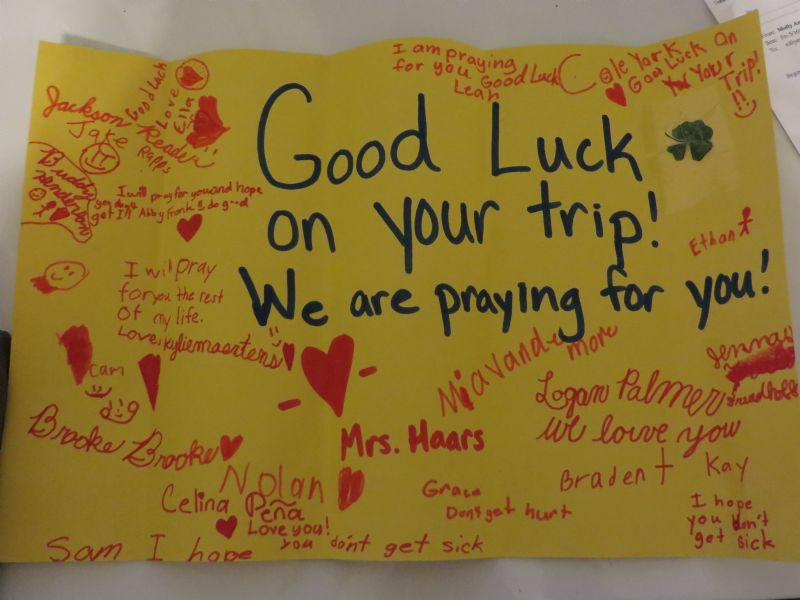 Good Luck
on your trip!
We are praying for you!
I am praying
for you Good Luck
Leah
Cole York
Good Luck On
Your
Trip!
Jackson
Jake
Good Luck
Love
Ella
Reader
Rapps
Buddy
I will pray for you and hope
you don't
get Ill Abby Frank do good
I wil pray
for you the rest
of my life.
Love, kylie maartens
Cam
Brooke Brooke
Nolan
Celina Peña
Love you!
Sam I hope you don't get sick
Mrs. Haars
Grace
Don't get hurt
Ethan
Mia Vande
more
Jenna
Logan Palmer
We love you
Braden
Kay
I hope
you don't
get sick